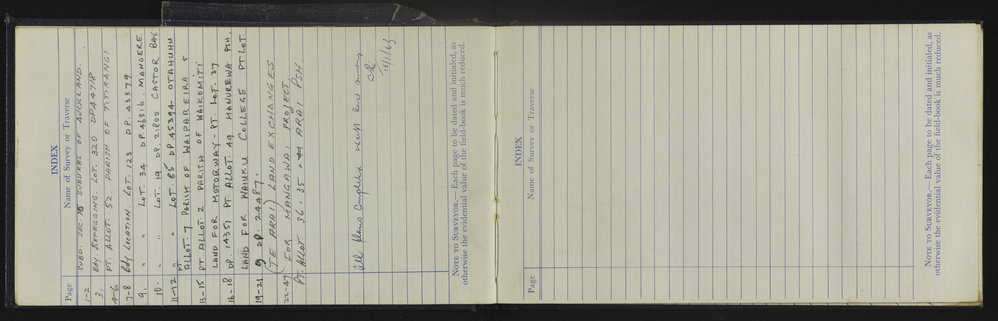 INDEX
Page Name of Survey or Traverse
1-2 SUBD. SEC. 16 SUBURBS OF AUCKLAND.
3. Bdy REPEGGING LOT. 320 DP44718
4-6 PT. ALLOT. 52. PARISH OF TITIRANGI
7-8 Bdy LOCATION. LOT. 123 DP. 43379
9. " " LOT. 34 DP.46316. MANGERE.
10. " " LOT. 19 DP. 21802 CASTOR BAY
11-12 " " LOT. 85 DP.45394 OTAHUHU
PT. ALLOT. 7 PARISH OF WAIPAREIRA &
13-15 PT ALLOT 2 PARISH OF WAIKOMITI
LAND FOR MOTORWAY - PT. LOT. 37
16-18 DP 14351 PT ALLOT. 49 MANUREWA PSH.
LAND FOR WAIUKU COLLEGE PT. LOT.
19-21 9 DP. 24487.
(TE ARAI) LAND EXCHANGES
22-47 FOR MANGAWAI PROJECT.
PT. ALLOT 36. 35 & 44 ARAI PSH.
All plans completed
CR
/11/63
NOTE TO SURVEYOR.— Each page to be dated and initialed, as
otherwise the evidential value of the field-book is much reduced.
INDEX
Page Name of Survey or Traverse
NOTE TO SURVEYOR.— Each page to be dated and initialed, as
otherwise the evidential value of the field-book is much reduced.